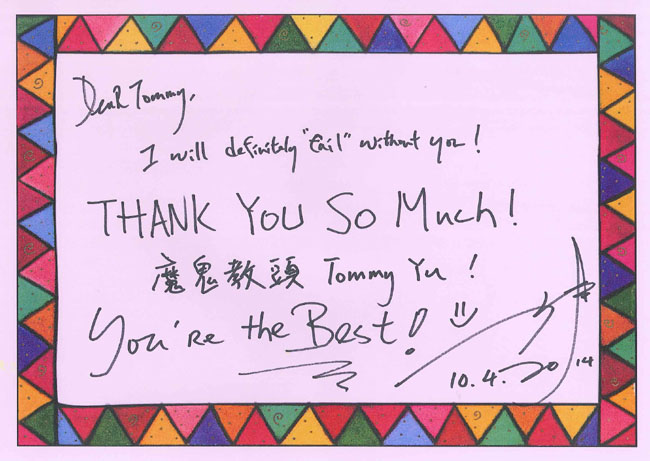 Dear Tommy,
I will definitely "fail" without you!
THANK YOU SO Much!
魔鬼教頭 Tommy Yu!
You're the Best! =)
10.4.2014